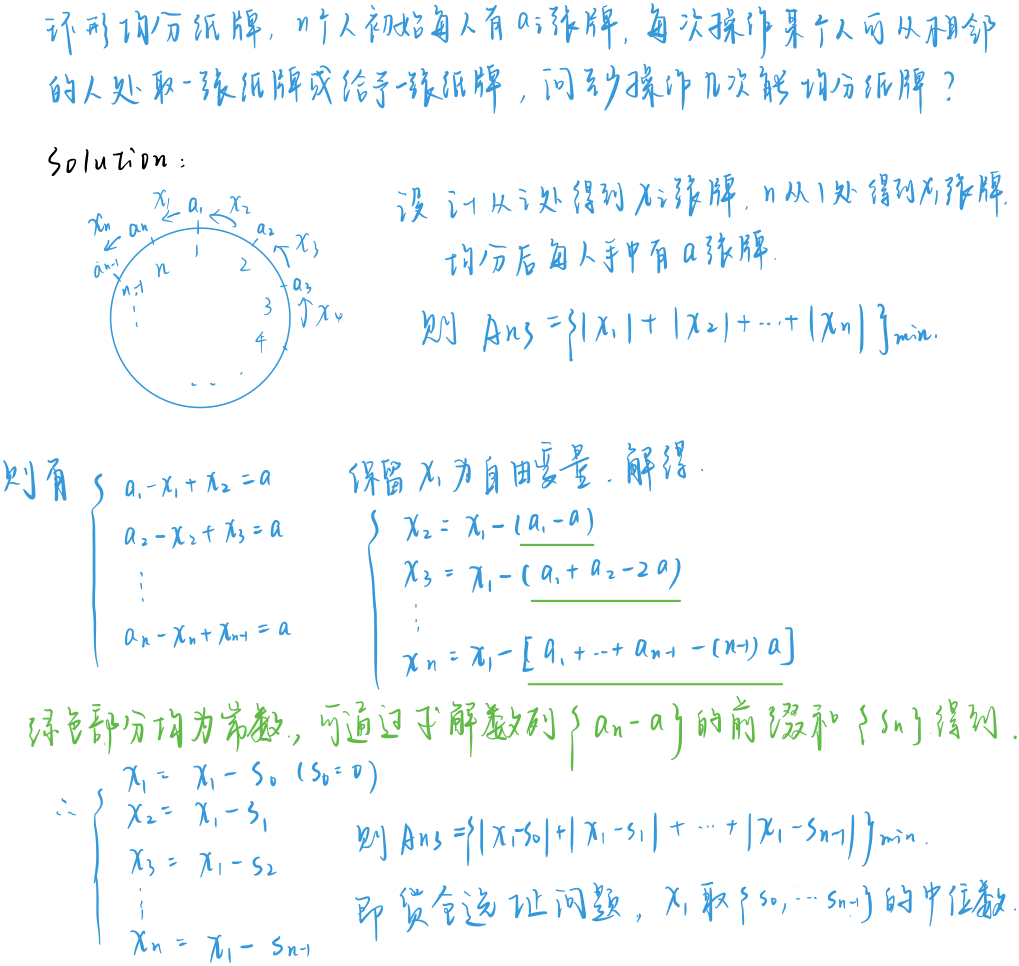 环形均分纸牌, n个人初始每人有aᵢ张牌, 每次操作某个人可从相邻
的人处取一张纸牌或给予一张纸牌, 问至少操作几次能均分纸牌?
Solution:
设 i-1从i处得到xᵢ张牌, n从1处得到x₁张牌,
均分后每人手中有a张牌.
则 Ans = {|x₁| + |x₂| + ... + |xₙ|}min.
x₁ a₁ x₂
xₙ aₙ a₂ x₃
aₙ₋₁ n 1 2 a₃
n-1 3 x₄
⋮ 4
...
则有 { a₁ - x₁ + x₂ = a
a₂ - x₂ + x₃ = a
⋮
aₙ - xₙ + xₙ₋₁ = a
保留x₁为自由变量. 解得.
{ x₂ = x₁ - (a₁ - a)
x₃ = x₁ - (a₁ + a₂ - 2a)
⋮
xₙ = x₁ - [a₁ + ... + aₙ₋₁ - (n-1)a]
绿色部分均为常数, 可通过求解数列{aₙ - a}的前缀和{Sₙ}得到.
∴ { x₁ = x₁ - S₀ (S₀ = 0)
x₂ = x₁ - S₁
x₃ = x₁ - S₂
⋮
xₙ = x₁ - Sₙ₋₁
则 Ans = {|x₁-S₀| + |x₁ - S₁| + ... + |x₁ - Sₙ₋₁|}min.
即货仓选址问题, x₁取{S₀, ... Sₙ₋₁}的中位数.